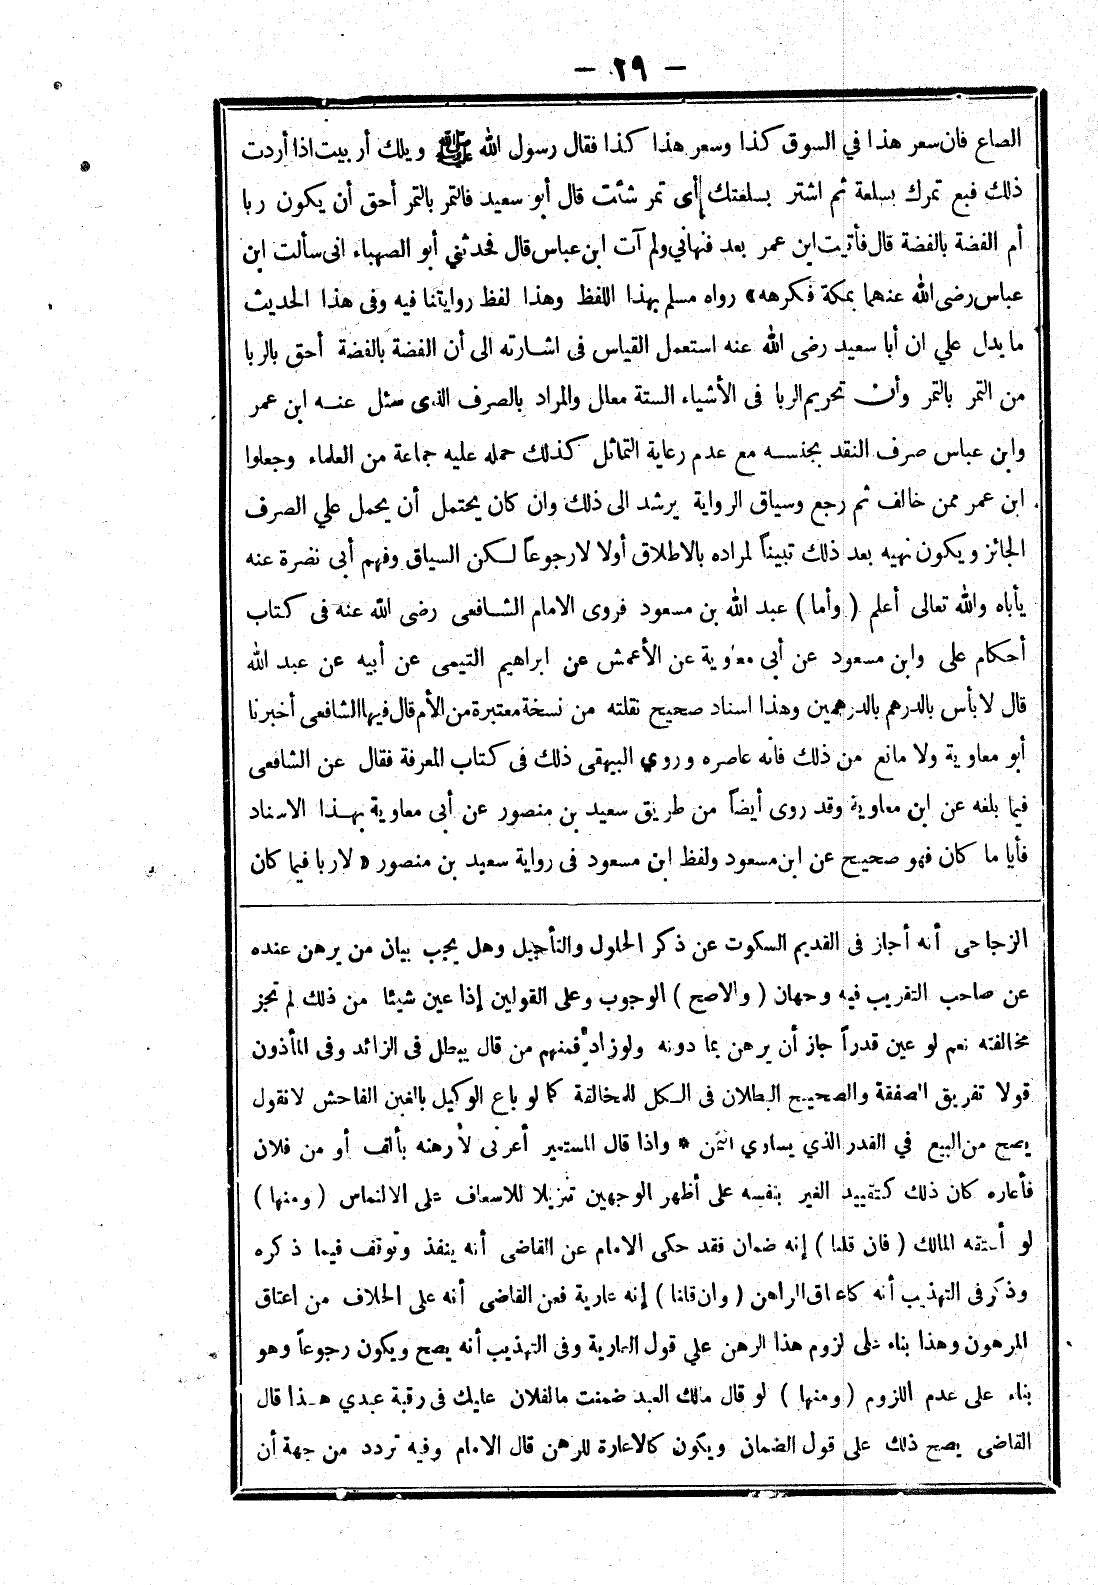 — ٢٩ —
الصاع فان سعر هذا في السوق كذا وسعر هذا كذا فقال رسول الله ﷺ ويلك أربيت اذا أردت
ذلك فبع تمرك بسلعة ثم اشتر بسلعتك أى تمر شئت قال أبو سعيد فالتمر بالتمر أحق أن يكون ربا
أم الفضة بالفضة قال فأتيت ابن عمر بعد فنهاني ولم آت ابن عباس قال فحدثني أبو الصهباء انى سألت ابن
عباس رضى الله عنهما بمكة فكرهه» رواه مسلم بهذا اللفظ وهذا لفظ روايتنا فيه وفى هذا الحديث
ما يدل علي ان أبا سعيد رضى الله عنه استعمل القياس فى اشارته الى أن الفضة بالفضة أحق بالربا
من التمر بالتمر وأن تحريم الربا فى الأشياء الستة معال والمراد بالصرف الذى سئل عنه ابن عمر
وابن عباس صرف النقد بجنسه مع عدم رعاية التماثل كذلك حمله عليه جماعة من العلماء وجعلوا
ابن عمر ممن خالف ثم رجع وسياق الرواية يرشد الى ذلك وان كان يحتمل أن يحمل علي الصرف
الجائز ويكون نهيه بعد ذلك تبيناً لمراده بالاطلاق أولا لا رجوعاً لكن السياق وفهم أبى نضرة عنه
يأباه والله تعالى أعلم (وأما) عبد الله بن مسعود فروى الامام الشافعى رضى الله عنه فى كتاب
أحكام على وابن مسعود عن أبى معاوية عن الأعمش عن ابراهيم التيمى عن أبيه عن عبد الله
قال لا بأس بالدرهم بالدرهمين وهذا اسناد صحيح نقلته من نسخة معتبرة من الأم قال فيها الشافعى أخبرنا
أبو معاوية ولا مانع من ذلك فانه عاصره وروي البيهقى ذلك فى كتاب المعرفة فقال عن الشافعى
فيما بلغه عن ابن معاوية وقد روى أيضاً من طريق سعيد بن منصور عن أبى معاوية بهذا الاسناد
فأيا ما كان فهو صحيح عن ابن مسعود ولفظ ابن مسعود فى رواية سعيد بن منصور «لا ربا فيما كان
الزجاجى أنه أجاز فى القديم السكوت عن ذكر الحلول والتأجيل وهل يجب بيان من يرهن عنده
عن صاحب التقريب فيه وجهان (والاصح) الوجوب وعلى القولين إذا عين شيئا من ذلك لم تجز
مخالفته نعم لو عين قدراً جاز أن يرهن بما دونه ولو زاد فمنهم من قال يبطل فى الزائد وفى المأذون
قولا تفريق الصفقة والصحيح البطلان فى الكل للمخالفة كما لو باع الوكيل بالغبن الفاحش لا نقول
يصح من البيع في القدر الذي يساوي الثمن * واذا قال المستعير أعرنى لأرهنه بألف أو من فلان
فأعاره كان ذلك كتقييد الغير بنفسه على أظهر الوجهين تنزيلا للاسعاف على الالتماس (ومنها)
لو أعتقه المالك (فان قلنا) إنه ضمان فقد حكى الامام عن القاضى أنه ينفذ وتوقف فيما ذكره
وذكر فى التهذيب أنه كاعتاق الراهن (وان قلنا) إنه عارية فعن القاضى أنه على الخلاف من اعتاق
المرهون وهذا بناء على لزوم هذا الرهن علي قول العارية وفى التهذيب أنه يصح ويكون رجوعاً وهو
بناء على عدم اللزوم (ومنها) لو قال مالك العبد ضمنت ما لفلان عليك فى رقبة عبدي هذا قال
القاضى يصح ذلك على قول الضمان ويكون كالاعارة للرهن قال الامام وفيه تردد من جهة أن